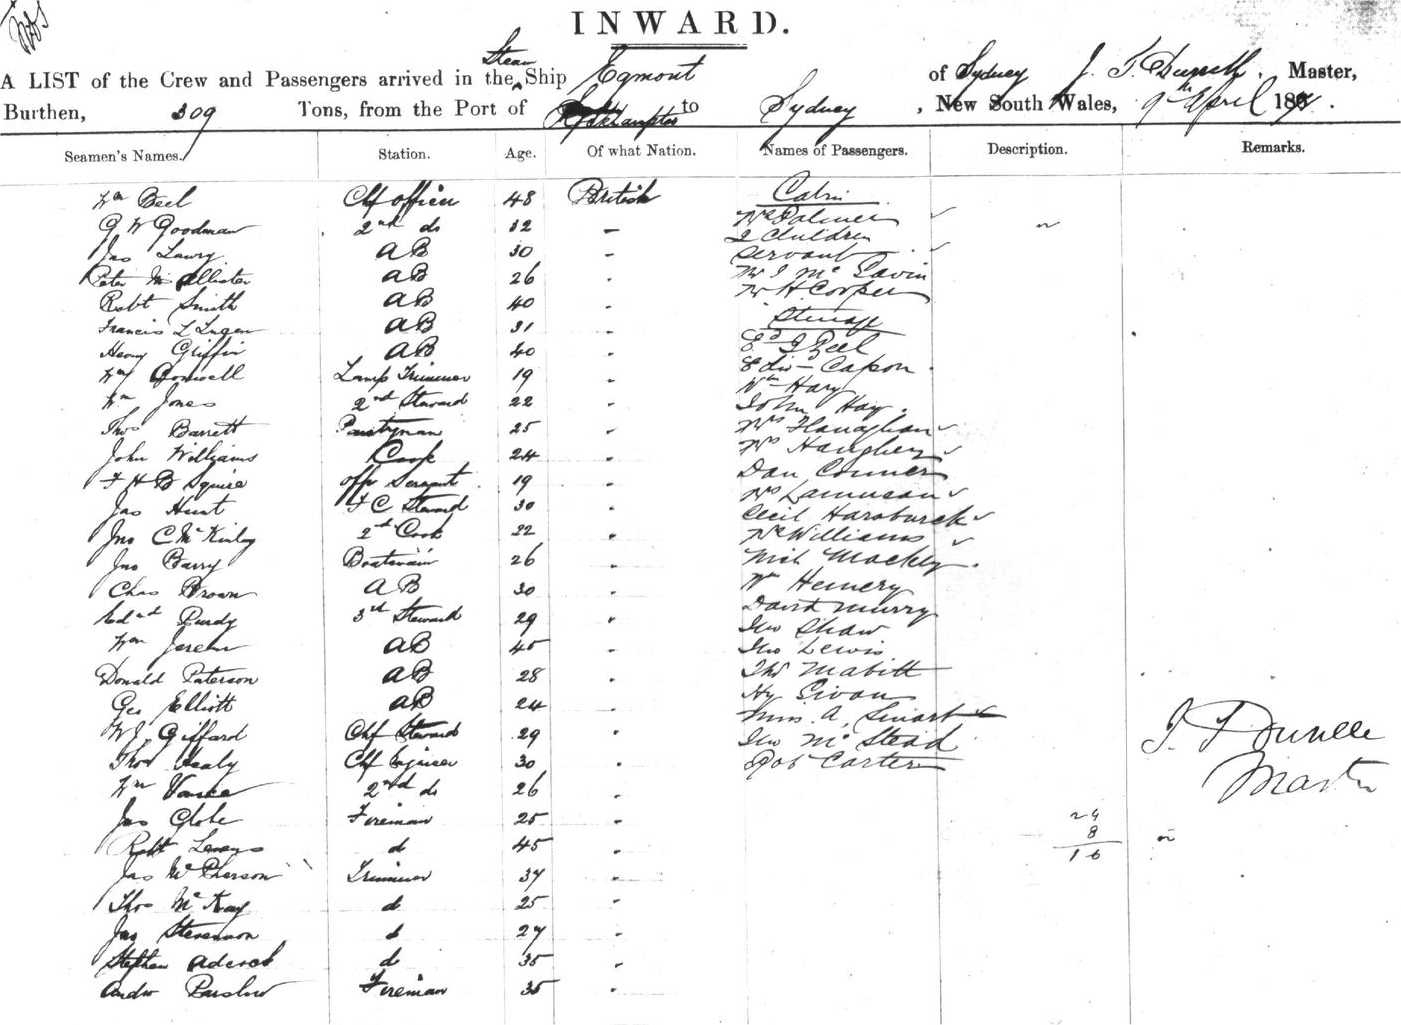 INWARD.
A LIST of the Crew and Passengers arrived in the Steam Ship Egmont of Sydney J. F. Master,
Burthen, 309 Tons, from the Port of Rockhampton to Sydney, New South Wales, 9th April 18
Seamen's Names. Station. Age. Of what Nation. Names of Passengers. Description. Remarks.
Wm Beel Chf officer 48 British Cabin
G W Goodman 2nd do 32 " Mrs Palmer
2 Children
Jas Lawry AB 30 " Servant
Peter McAllister AB 26 " Mr J McGavin
Robt Smith AB 40 " Mr H Cooper
Francis L AB 31 " Steerage
Henry Griffin AB 40 " Ed J Beel
Wm Lamp Trimmer 19 " Edw Capon
Wm Jones 2nd Steward 22 " Wm Hay
John Hay
Thos Barrett Pantryman 25 " Mrs Flanaghan
John Williams Cook 24 " Mrs
T H B Squire offr Servant 19 " Dan Conner
Jas Hunt F C Steward 30 " Mrs
Cecil
Jno C McKinley 2nd Cook 22 " Mrs Williams
Jno Barry Boatswain 26 " Nich Mackly
Chas Brown AB 30 " Wm Hemery
Edwd Purdy 3rd Steward 29 " David Murry
Jno Shaw
Wm AB 45 " Jno Lewis
Donald Paterson AB 28 " Thos Mabitt
Geo Elliott AB 24 " Hy
W J Giffard Chf Steward 29 " Miss A.
Jno McStead
Thos Healy Chf Engineer 30 " Rob Carter
Wm Vance 2nd do 26 "
J. F.
Master
Jas Globe Fireman 25 " 24
Robt d 45 " 8
16
Jas McPherson Trimmer 37 "
Thos McKay d 25 "
Jas Stevenson d 27 "
Stephen Adcock d 35 "
Andw Barslow Fireman 35 "